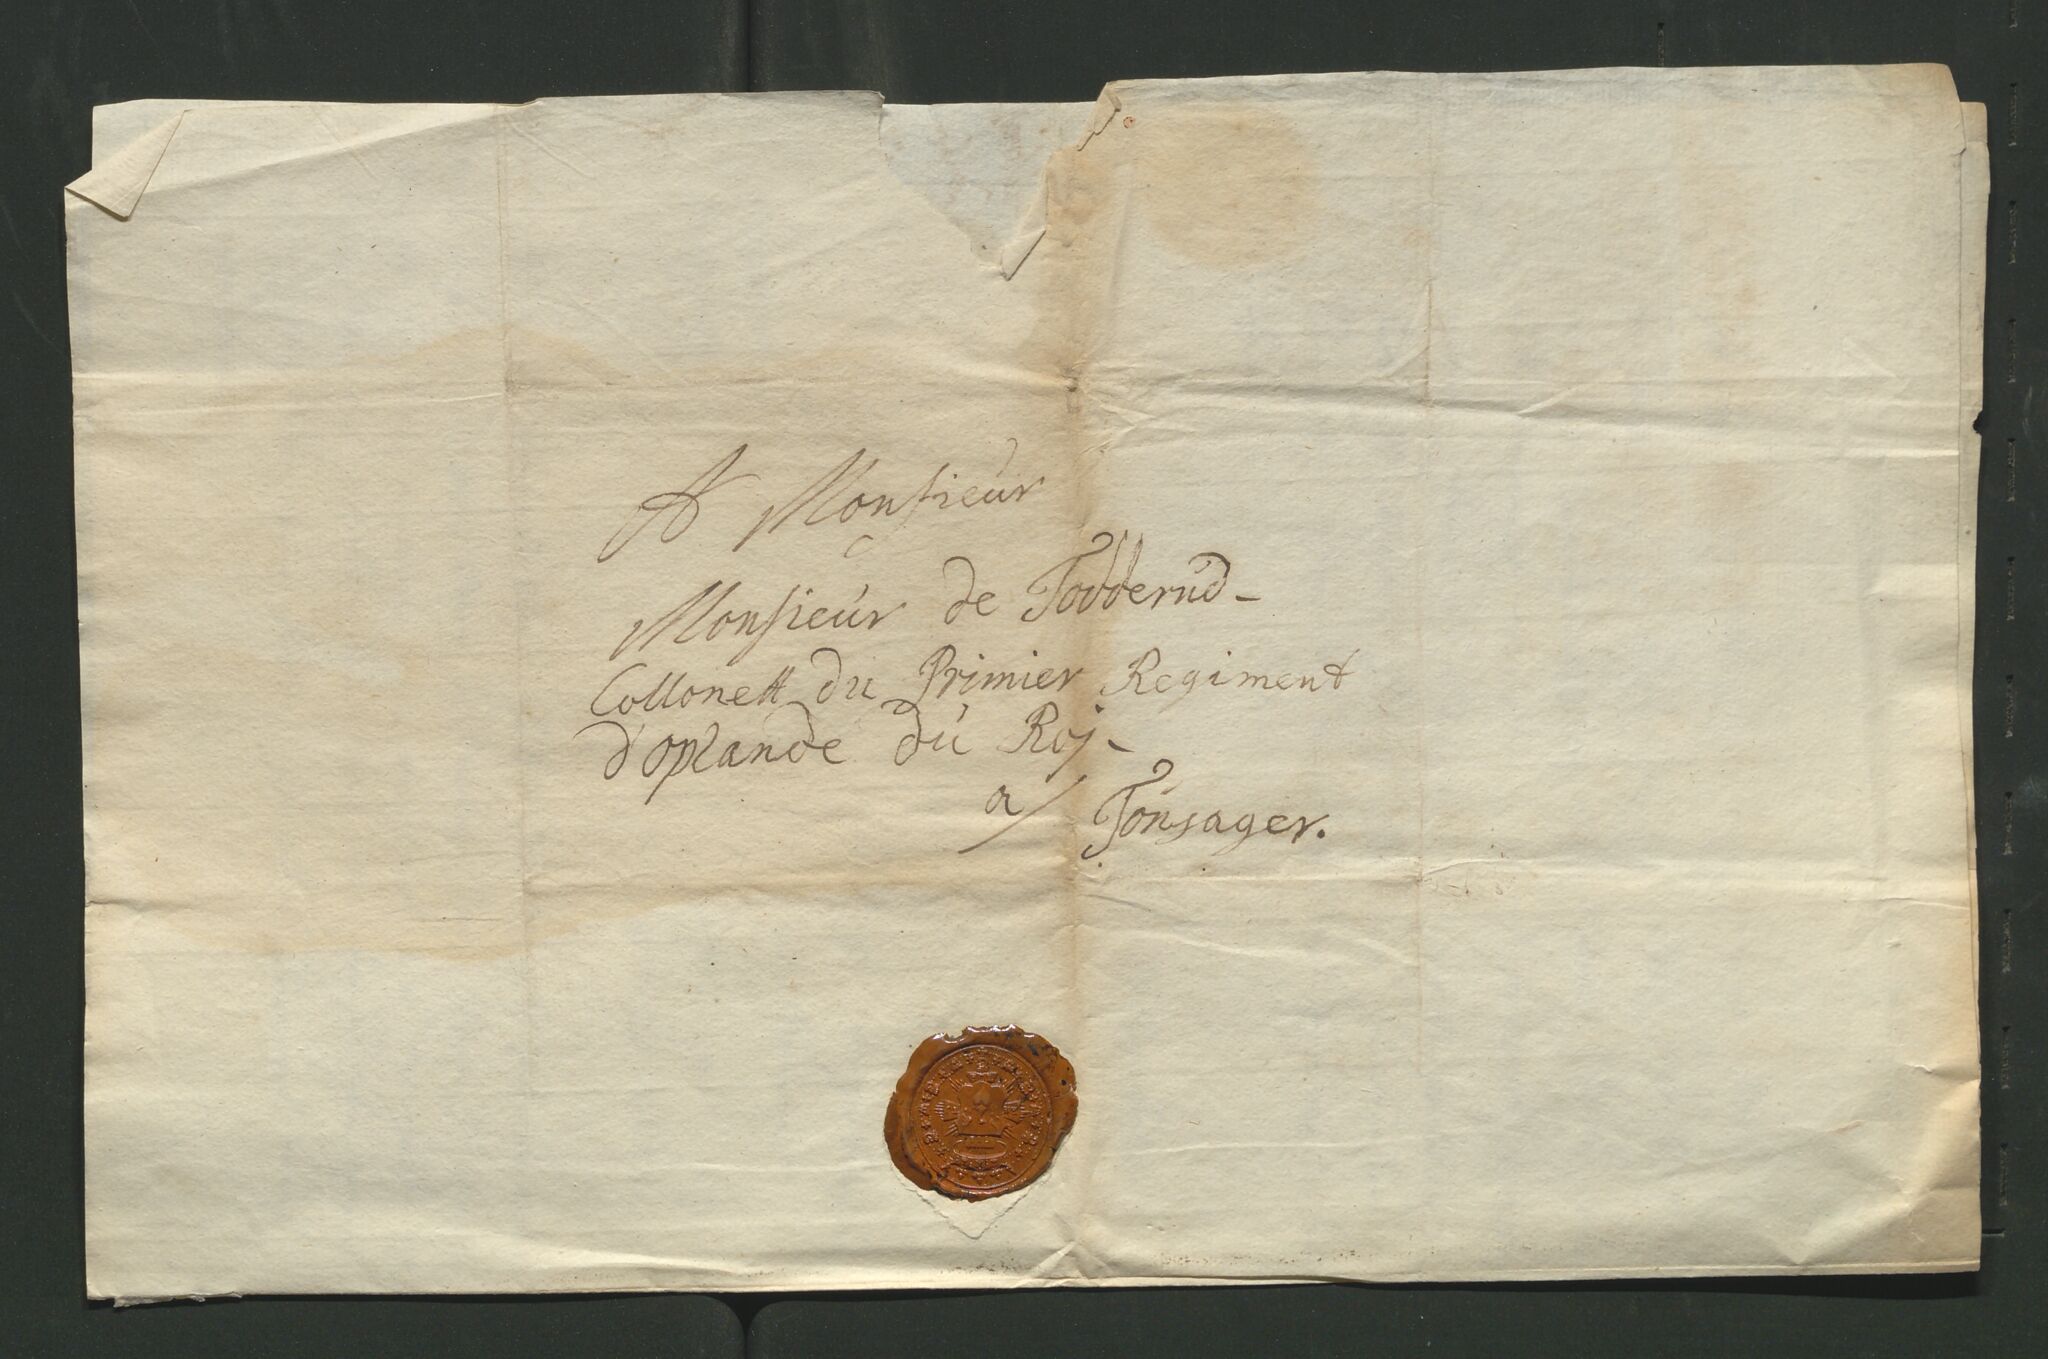 A Monsieur
Monsieur de Todderud-
Collonell du Primier Regiment
d'oplande du Roj-
a/ Tonsager.